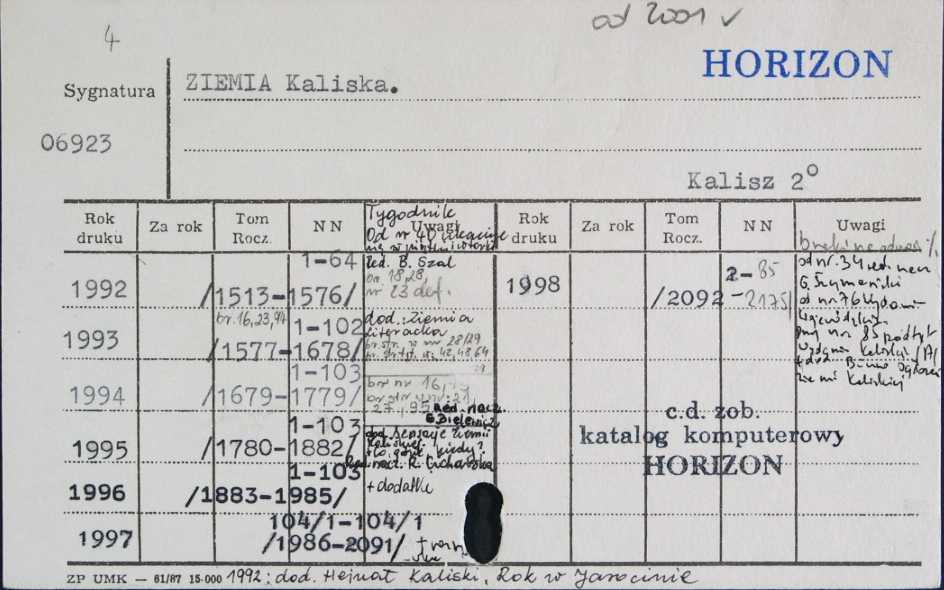 od 2001 v
4
HORIZON
Sygnatura
ZIEMIA Kaliska.
06923
Kalisz 2°
Rok druku
Za rok
Tom Rocz.
NN
Uwagi
Rok druku
Za rok
Tom Rocz.
NN
Uwagi
Tygodnik
Od nr 40
1992
1-64
/1513-1576/
Red. B. Szal
nr 18,28,
nr 23 def.
1998
2-85
/2092-2175/
od nr 34 red. nacz.
G.
od nr 76
nr 85
Kaliskiej
1993
br. 16,23,94
1-102
/1577-1678/
dod.: Ziemia
literacka
br. str. w nr 28/29
1994
1-103
/1679-1779/
br nr 16,
27,95
Red. nacz.
1995
1-103
/1780-1882/
dod. Sensacje Ziemi
Kaliskiej
Red. nacz. R.
c.d. zob.
katalog komputerowy
HORIZON
1996
1-103
/1883-1985/
+ dodatki
1997
104/1-104/1
/1986-2091/
ZP UMK — 61/87 15·000 1992: dod. Hejnał Kaliski, Rok w Jarocinie